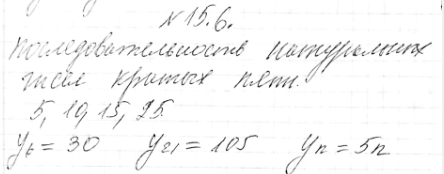 № 15.6.
Последовательность натуральных
чисел кратых пяти.
5, 10, 15, 25
y₆ = 30 y₂₁ = 105 yₙ = 5n